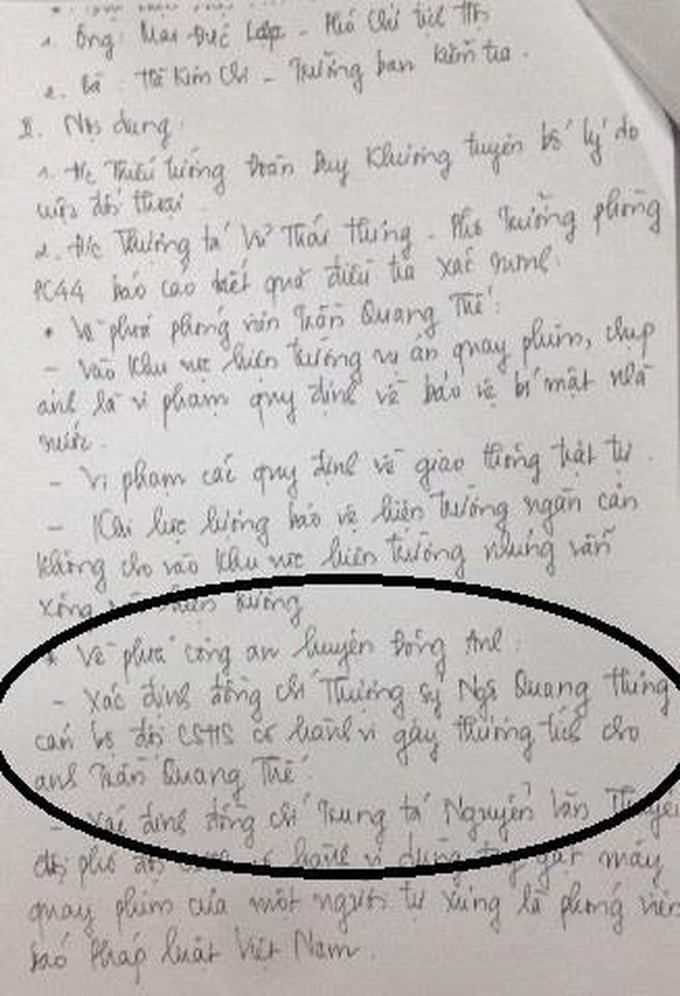 1. Ông: Mai Đức Lập - Phó Chủ tịch Hội
2. Bà: Hà Kim Chi - Trưởng ban kiểm tra.
II. Nội dung:
1. Đ/c Thiếu tướng Đoàn Duy Khương tuyên bố lý do
việc đối thoại
2. Đ/c Thượng tá Vũ Thái Hưng - Phó Trưởng phòng
PC44 báo cáo kết quả điều tra xác minh.
* Về phía phóng viên Trần Quang Thế:
- Vào khu vực hiện trường vụ án quay phim, chụp
ảnh là vi phạm quy định về bảo vệ bí mật nhà
nước.
- Vi phạm các quy định về giao thông trật tự.
- Khi lực lượng bảo vệ hiện trường ngăn cản
không cho vào khu vực hiện trường nhưng vẫn
xông hiện trường
* Về phía công an huyện Đông Anh:
- Xác định đồng chí Thượng sỹ Ngô Quang Hưng
cán bộ đội CSHS có hành vi gây thương tích cho
anh Trần Quang Thế.
- Xác định đồng chí Trung tá Nguyễn Văn
đội phó đội có hành vi dùng tay gạt máy
quay phim của một người tự xưng là phóng viên
báo Pháp luật Việt Nam.